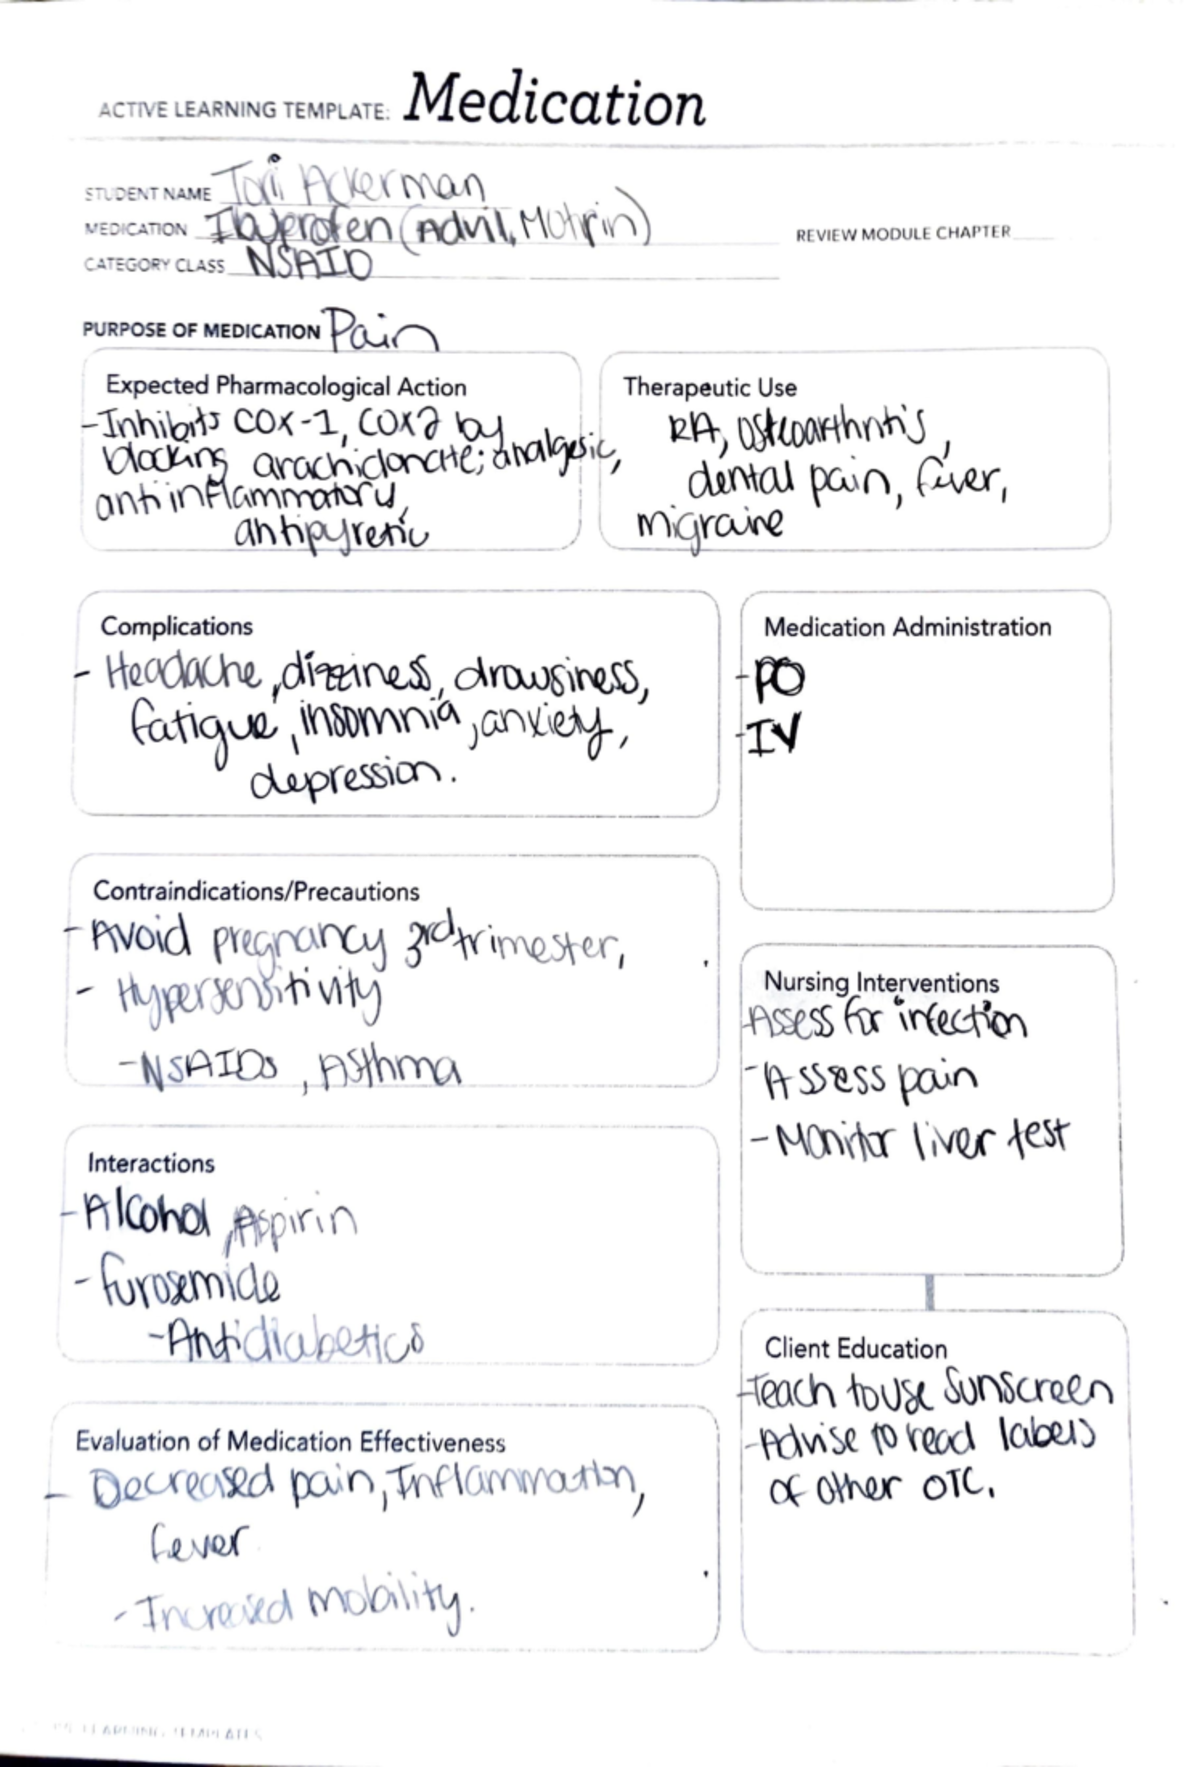 ACTIVE LEARNING TEMPLATE: Medication
STUDENT NAME Tori Ackerman
MEDICATION Ibuprofen (Advil, Motrin)
REVIEW MODULE CHAPTER
CATEGORY CLASS NSAID
PURPOSE OF MEDICATION Pain
Expected Pharmacological Action
-Inhibits COX-1, COX2 by
blocking arachidonate; analgesic,
antiinflammatory,
antipyretic
Therapeutic Use
RA, osteoarthritis,
dental pain, fever,
migraine
Complications
- Headache, dizziness, drowsiness,
fatigue, insomnia, anxiety,
depression.
Medication Administration
-PO
-IV
Contraindications/Precautions
-Avoid pregnancy 3rd trimester,
- Hypersensitivity
-NSAIDs, Asthma
Nursing Interventions
-Assess for infection
-Assess pain
-Monitor liver test
Interactions
-Alcohol, Aspirin
-furosemide
-Antidiabetics
Client Education
-Teach to use Sunscreen
-Advise to read labels
of other OTC.
Evaluation of Medication Effectiveness
- Decreased pain, Inflammation,
fever
-Increased mobility.
LEARNING TEMPLATES